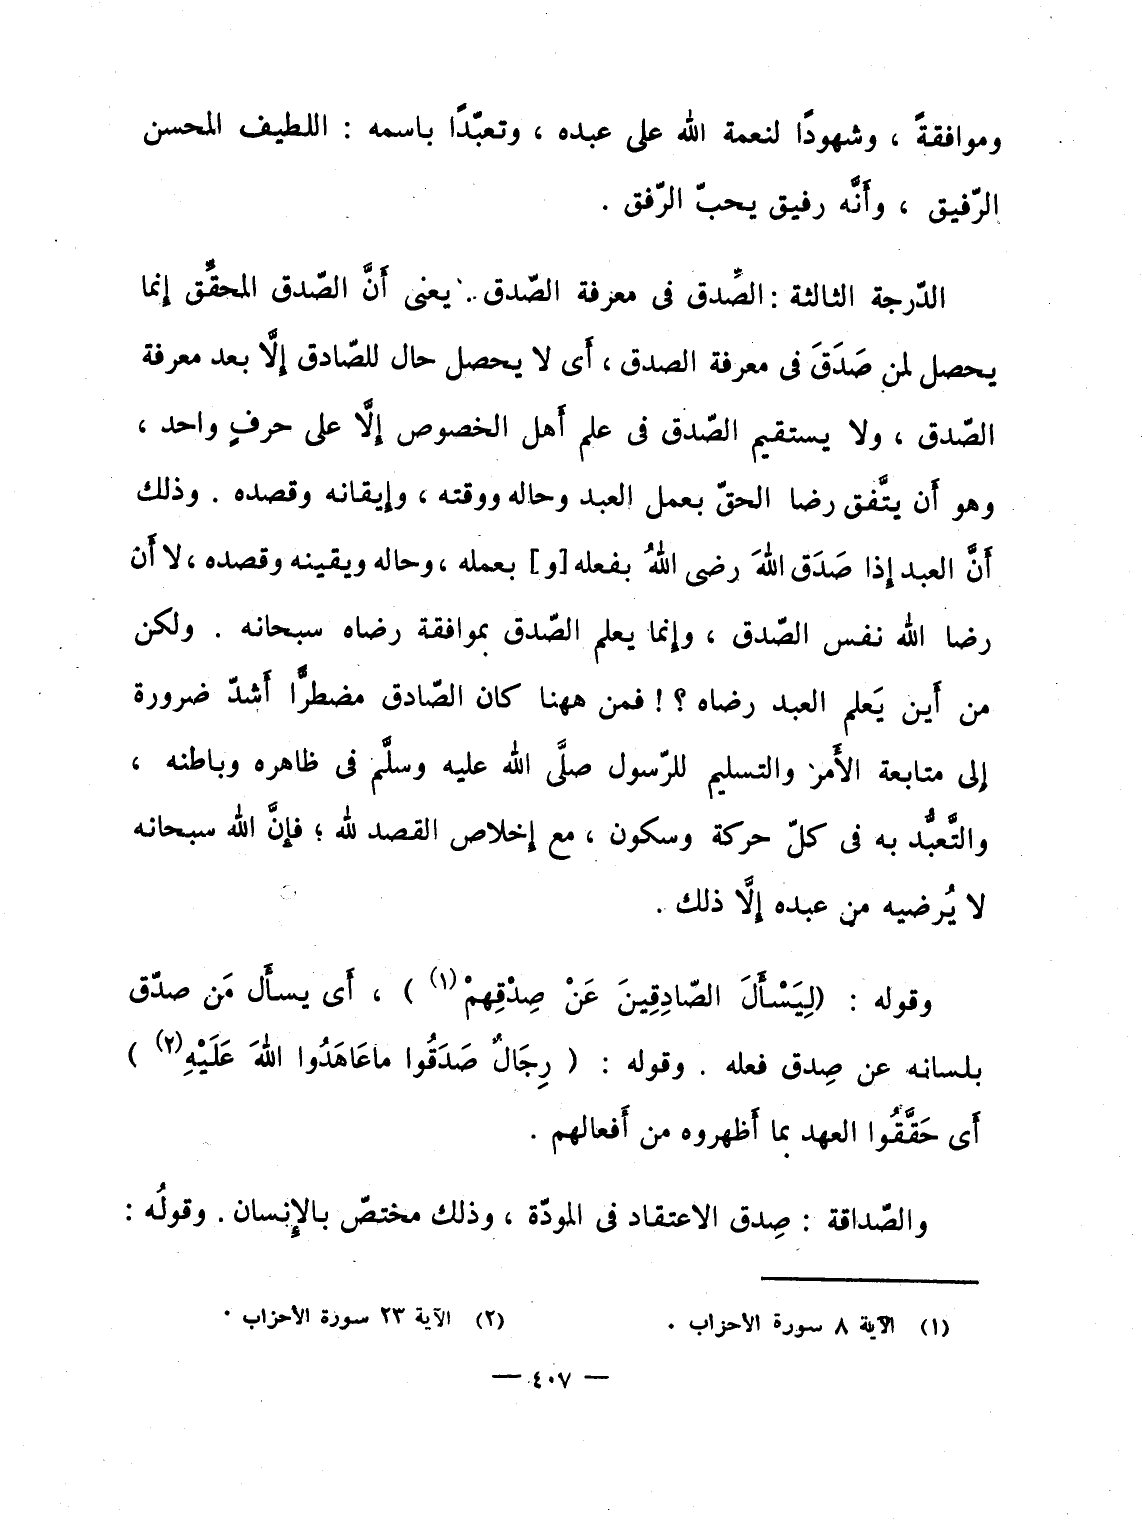 وموافقةً ، وشهودًا لنعمة الله على عبده ، وتعبّدًا باسمه : اللطيف المحسن
الرّفيق ، وأَنَّه رفيق يحبّ الرّفق .
الدّرجة الثالثة : الصِّدق فى معرفة الصّدق . يعنى أَنَّ الصّدق المحقَّق إنما
يحصل لمن صَدَقَ فى معرفة الصدق ، أَى لا يحصل حال للصّادق إِلَّا بعد معرفة
الصّدق ، ولا يستقيم الصّدق فى علم أَهل الخصوص إِلَّا على حرفٍ واحد ،
وهو أَن يتَّفق رضا الحقّ بعمل العبد وحاله ووقته ، وإِيقانه وقصده . وذلك
أَنَّ العبد إِذا صَدَق اللهَ رضى اللهُ بفعله [و] بعمله ، وحاله ويقينه وقصده ، لا أَن
رضا الله نفس الصّدق ، وإِنما يعلم الصّدق بموافقة رضاه سبحانه . ولكن
من أَين يَعلم العبد رضاه ؟ ! فمن ههنا كان الصّادق مضطرًّا أَشدّ ضرورة
إِلى متابعة الأَمر والتسليم للرّسول صلَّى الله عليه وسلَّم فى ظاهره وباطنه ،
والتَّعبُّد به فى كلّ حركة وسكون ، مع إِخلاص القصد لله ؛ فإِنَّ الله سبحانه
لا يُرضيه من عبده إِلَّا ذلك .
وقوله : (لِيَسْأَلَ الصَّادِقِينَ عَنْ صِدْقِهِمْ (١) ) ، أَى يسأَل مَن صدّق
بلسانه عن صِدق فعله . وقوله : ( رِجَالٌ صَدَقُوا ماعَاهَدُوا اللهَ عَلَيْهِ (٢) )
أَى حَقَّقُوا العهد بما أَظهروه من أَفعالهم .
والصّداقة : صِدق الاعتقاد فى المودّة ، وذلك مختصّ بالإِنسان . وقولُه :
(١) الآية ٨ سورة الأحزاب . (٢) الآية ٢٣ سورة الأحزاب .
— ٤٠٧ —